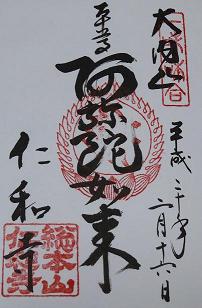 大内山
平成二十年二月十六日
奉拝
阿弥陀如来
仁和寺
総本山
仁和寺